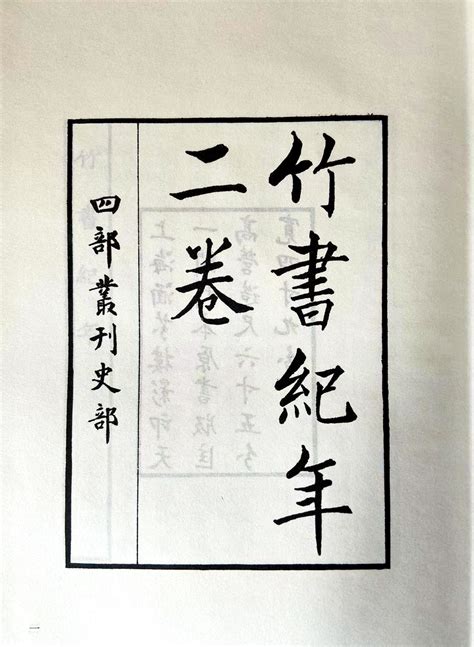 竹書紀年
二卷
四部叢刊史部
一